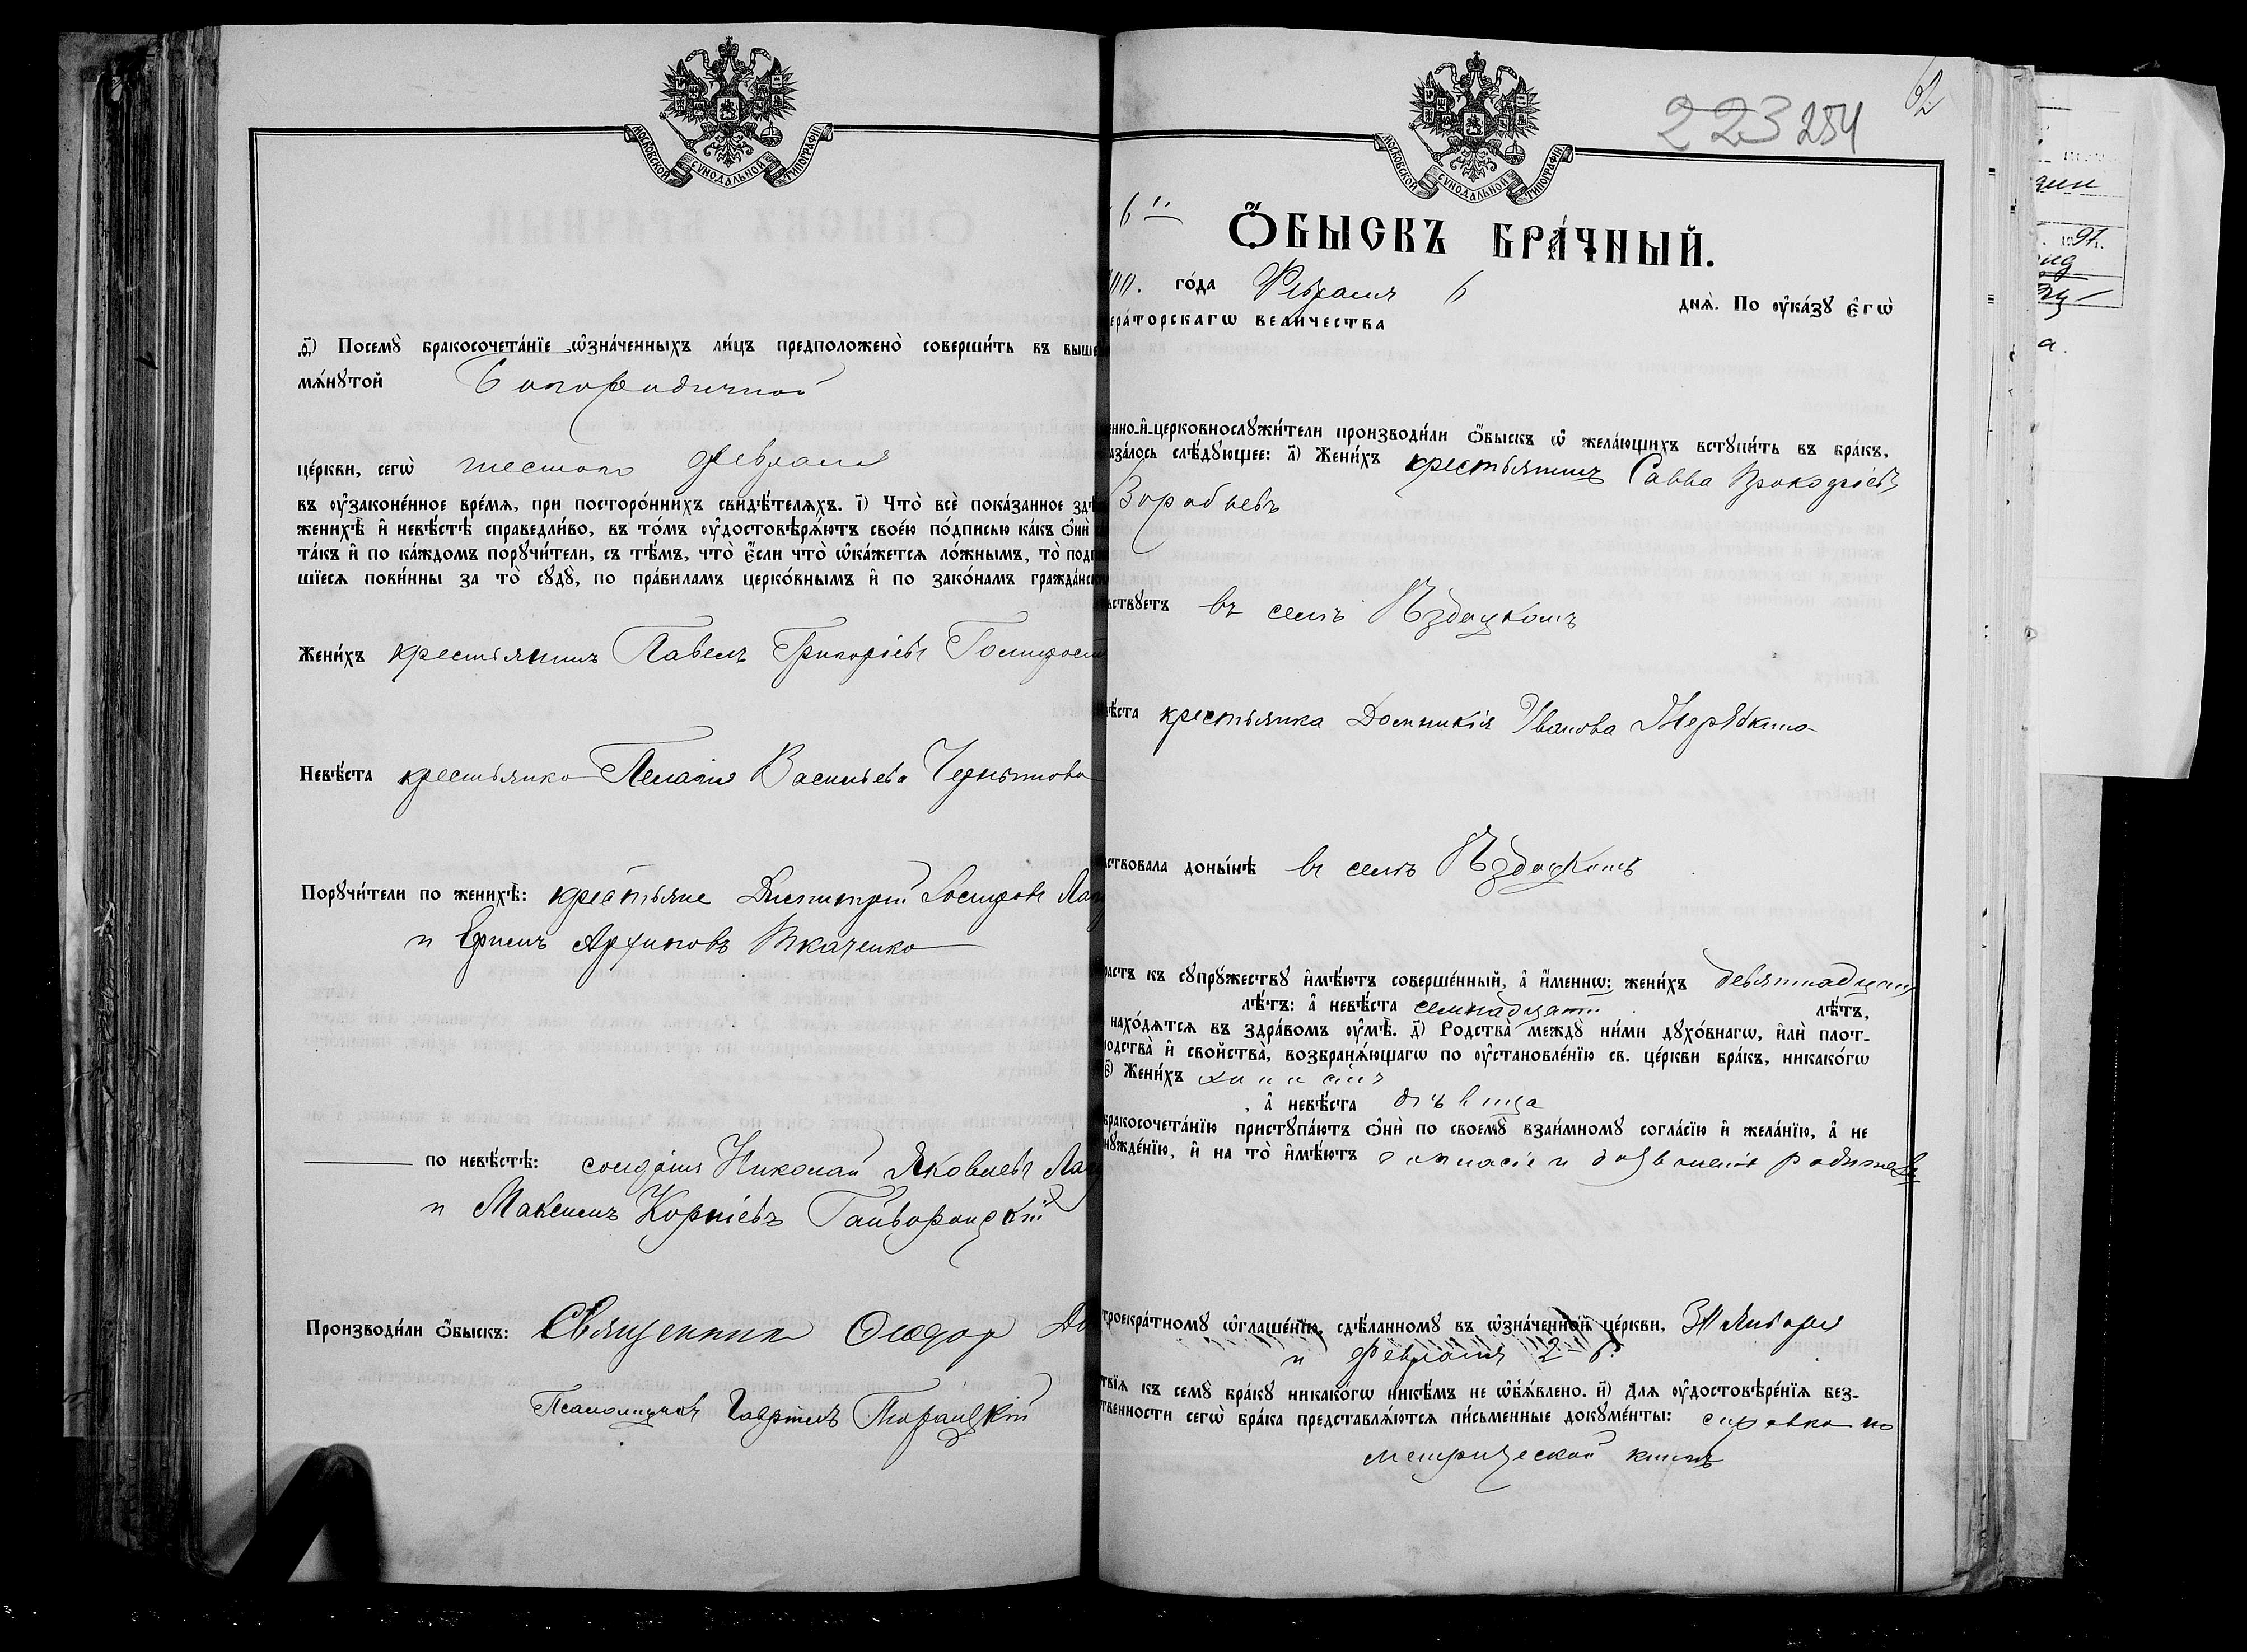 МОСКОВСКОЙ СѴНОДАЛЬНОЙ ТИПОГРАФІИ
ѳ҃) Посемꙋ̀ бракосочета́нїе ѡ҆зна́ченныхъ ли́цъ предположено̀ соверши́ть въ выше
мѧ́нꙋтой Богородичной
це́ркви, сегѡ̀ шестого Февраля
въ ᲂу҆законе́нное вре́мѧ, при посторо́ннихъ свидѣ́телѧхъ. і҃) Что̀ всѐ пока́занное здѣ
женихѣ̀ и҆ невѣ́стѣ справедли́во, въ то́мъ ᲂу҆достовѣрѧ́ютъ свое́ю по́дписью ка́къ ѻ҆нѝ
та́къ и҆ по ка́ждомъ порꙋчи́тели, съ тѣ́мъ, что̀ є҆́сли что̀ ѡ҆ка́жетсѧ ло́жнымъ, то̀ подп
шїесѧ пови́нны за то̀ сꙋдꙋ̀, по пра́виламъ церко́внымъ и҆ по зако́намъ гражда́нски
Жени́хъ крестьянинъ Павелъ Григоріевъ
Невѣ́ста крестьянка Пелагія Васильева
Порꙋчи́тели по женихѣ̀: крестьяне Димитрій
и Ефимъ Архиповъ Ткаченко
по невѣ́стѣ: солдатъ Николай Яковлевъ
и Максимъ Корніевъ Гайворонскій
Производи́ли ѻ҆́быскъ: Священникъ Ѳеодоръ
Псаломщикъ Гавріилъ
МОСКОВСКОЙ СѴНОДАЛЬНОЙ ТИПОГРАФІИ
223 254
6
Ѻ҆́БЫСКЪ БРА́ЧНЫЙ.
го́да Февраля 6 днѧ̀. По ᲂу҆ка́зꙋ є҆гѡ̀
ера́торскагѡ вели́чества
енно-и҆-церковнослꙋжи́тели производи́ли ѻ҆́быскъ ѡ҆ жела́ющихъ встꙋпи́ть въ бра́къ,
аза́лось слѣ́дꙋющее: а҃) Жени́хъ крестьянинъ Савва
Воробьевъ
ьствꙋетъ въ селѣ
ѣ́ста крестьянка Домникія Иванова
ствовала доны́нѣ въ селѣ
растъ къ сꙋпрꙋ́жествꙋ и҆мѣ́ютъ соверше́нный, а҆ и҆́меннѡ: жени́хъ девятнадцати
лѣ́тъ: а҆ невѣ́ста семнадцати лѣ́тъ,
нахо́дѧтсѧ въ здра́вомъ ᲂу҆мѣ̀. д҃) Родства̀ междꙋ ни́ми дꙋхо́внагѡ, и҆лѝ плот-
родства̀ и҆ свойства̀, возбранѧ́ющагѡ по ᲂу҆становле́нїю св. це́ркви бра́къ, никако́гѡ
є҃) Жени́хъ холостъ
, а҆ невѣ́ста дѣвица
бракосочета́нїю пристꙋпа́ютъ ѻ҆нѝ по своемꙋ̀ взаи́мномꙋ согла́сїю и҆ жела́нїю, а҆ не
нꙋжде́нїю, и҆ на то̀ и҆мѣ́ютъ согласіе и дозволеніе родителей
троекра́тномꙋ ѡ҆глаше́нїю, сдѣ́ланномꙋ въ ѡ҆зна́ченной це́ркви, Января
и Февраля 2
твїѧ къ семꙋ̀ бра́кꙋ никако́гѡ никѣ́мъ не ѡ҆б̾ѧ́влено. и҃) Длѧ ᲂу҆достовѣре́нїѧ без-
твенности сегѡ̀ бра́ка представлѧ́ютсѧ пи́сьменные докꙋме́нты: справка по
метрической книгѣ